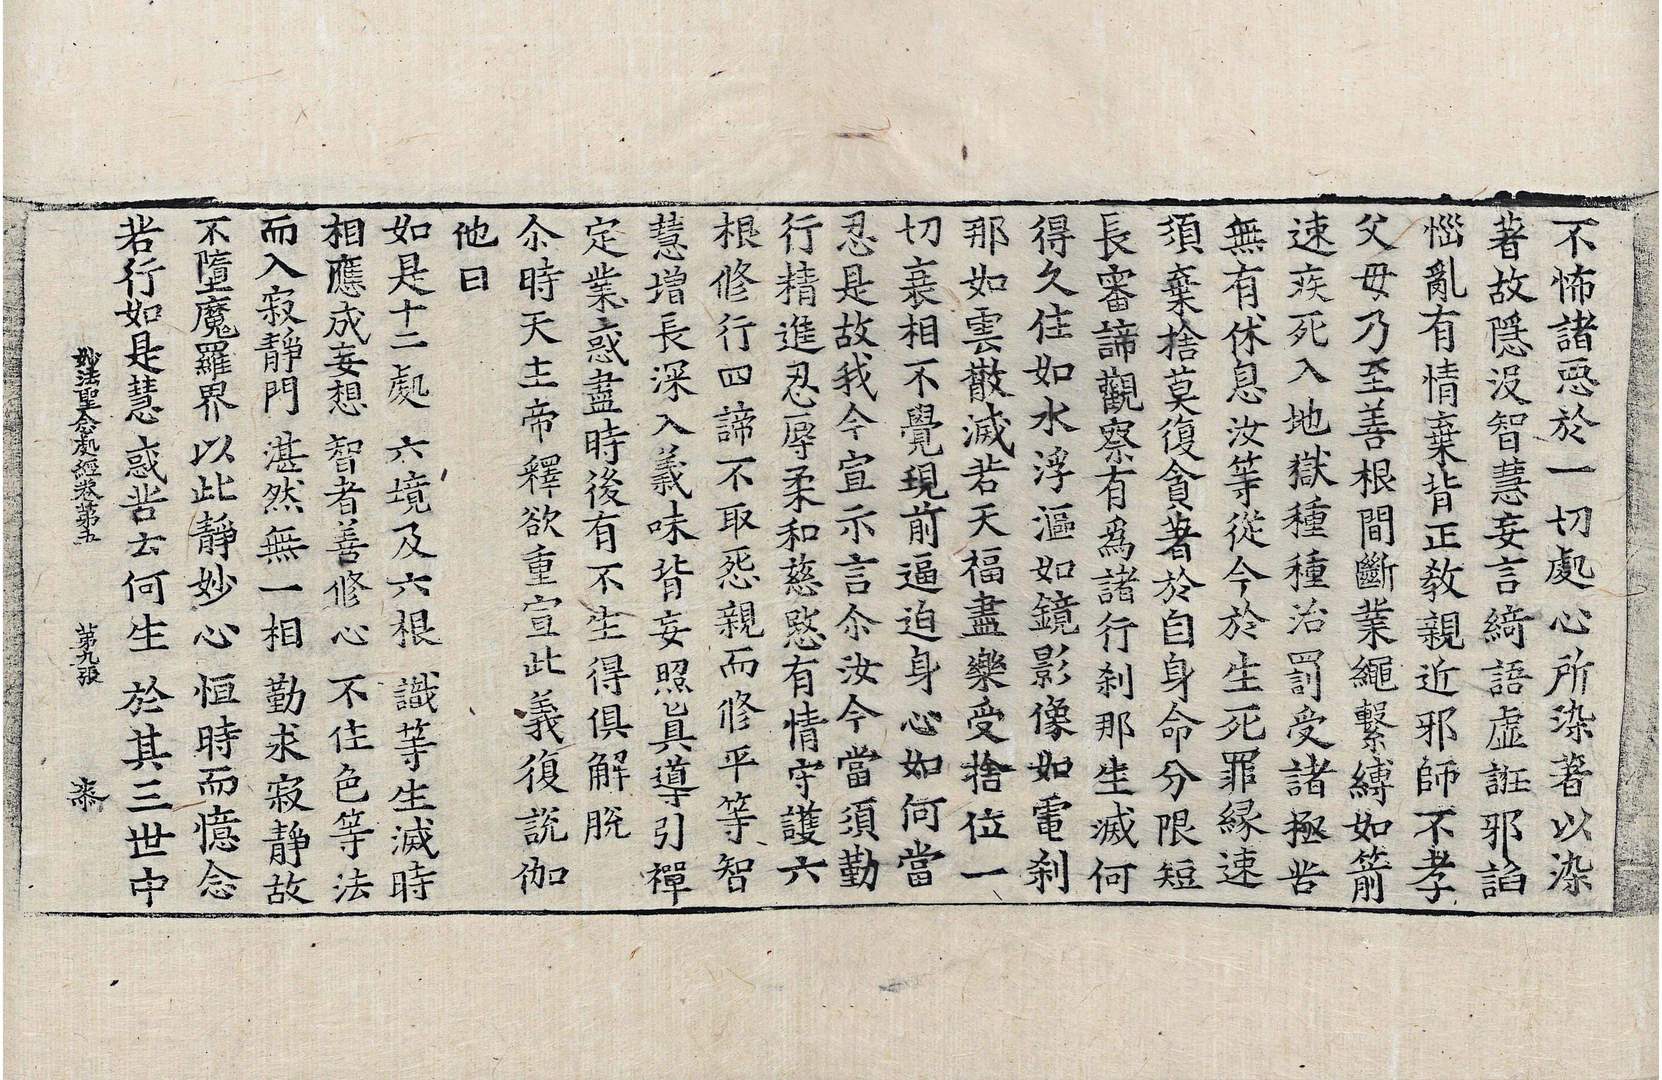 不怖諸惡於一切處心所染著以染
著故隱沒智慧妄言綺語虛誑邪諂
惱亂有情棄背正教親近邪師不孝
父母乃至善根間斷業繩繫縛如箭
速疾死入地獄種種治罰受諸極苦
無有休息汝等從今於生死罪緣速
須棄捨莫復貪著於自身命分限短
長審諦觀察有為諸行剎那生滅何
得久住如水浮漚如鏡影像如電剎
那如雲散滅若天福盡樂受捨位一
切衰相不覺現前逼迫身心如何當
忍是故我今宣示言尒汝今當須勤
行精進忍辱柔和慈愍有情守護六
根修行四諦不取怨親而修平等智
慧增長深入義味背妄照真導引禪
定業惑盡時後有不生得俱解脫
尒時天主帝釋欲重宣此義復說伽
他曰
如是十二處　六境及六根　識等生滅時
相應成妄想　智者善修心　不住色等法
而入寂靜門　湛然無一相　勤求寂靜故
不墮魔羅界　以此靜妙心　恒時而憶念
若行如是慧　惑苦云何生　於其三世中
妙法聖念處經卷第五　第九張　柰